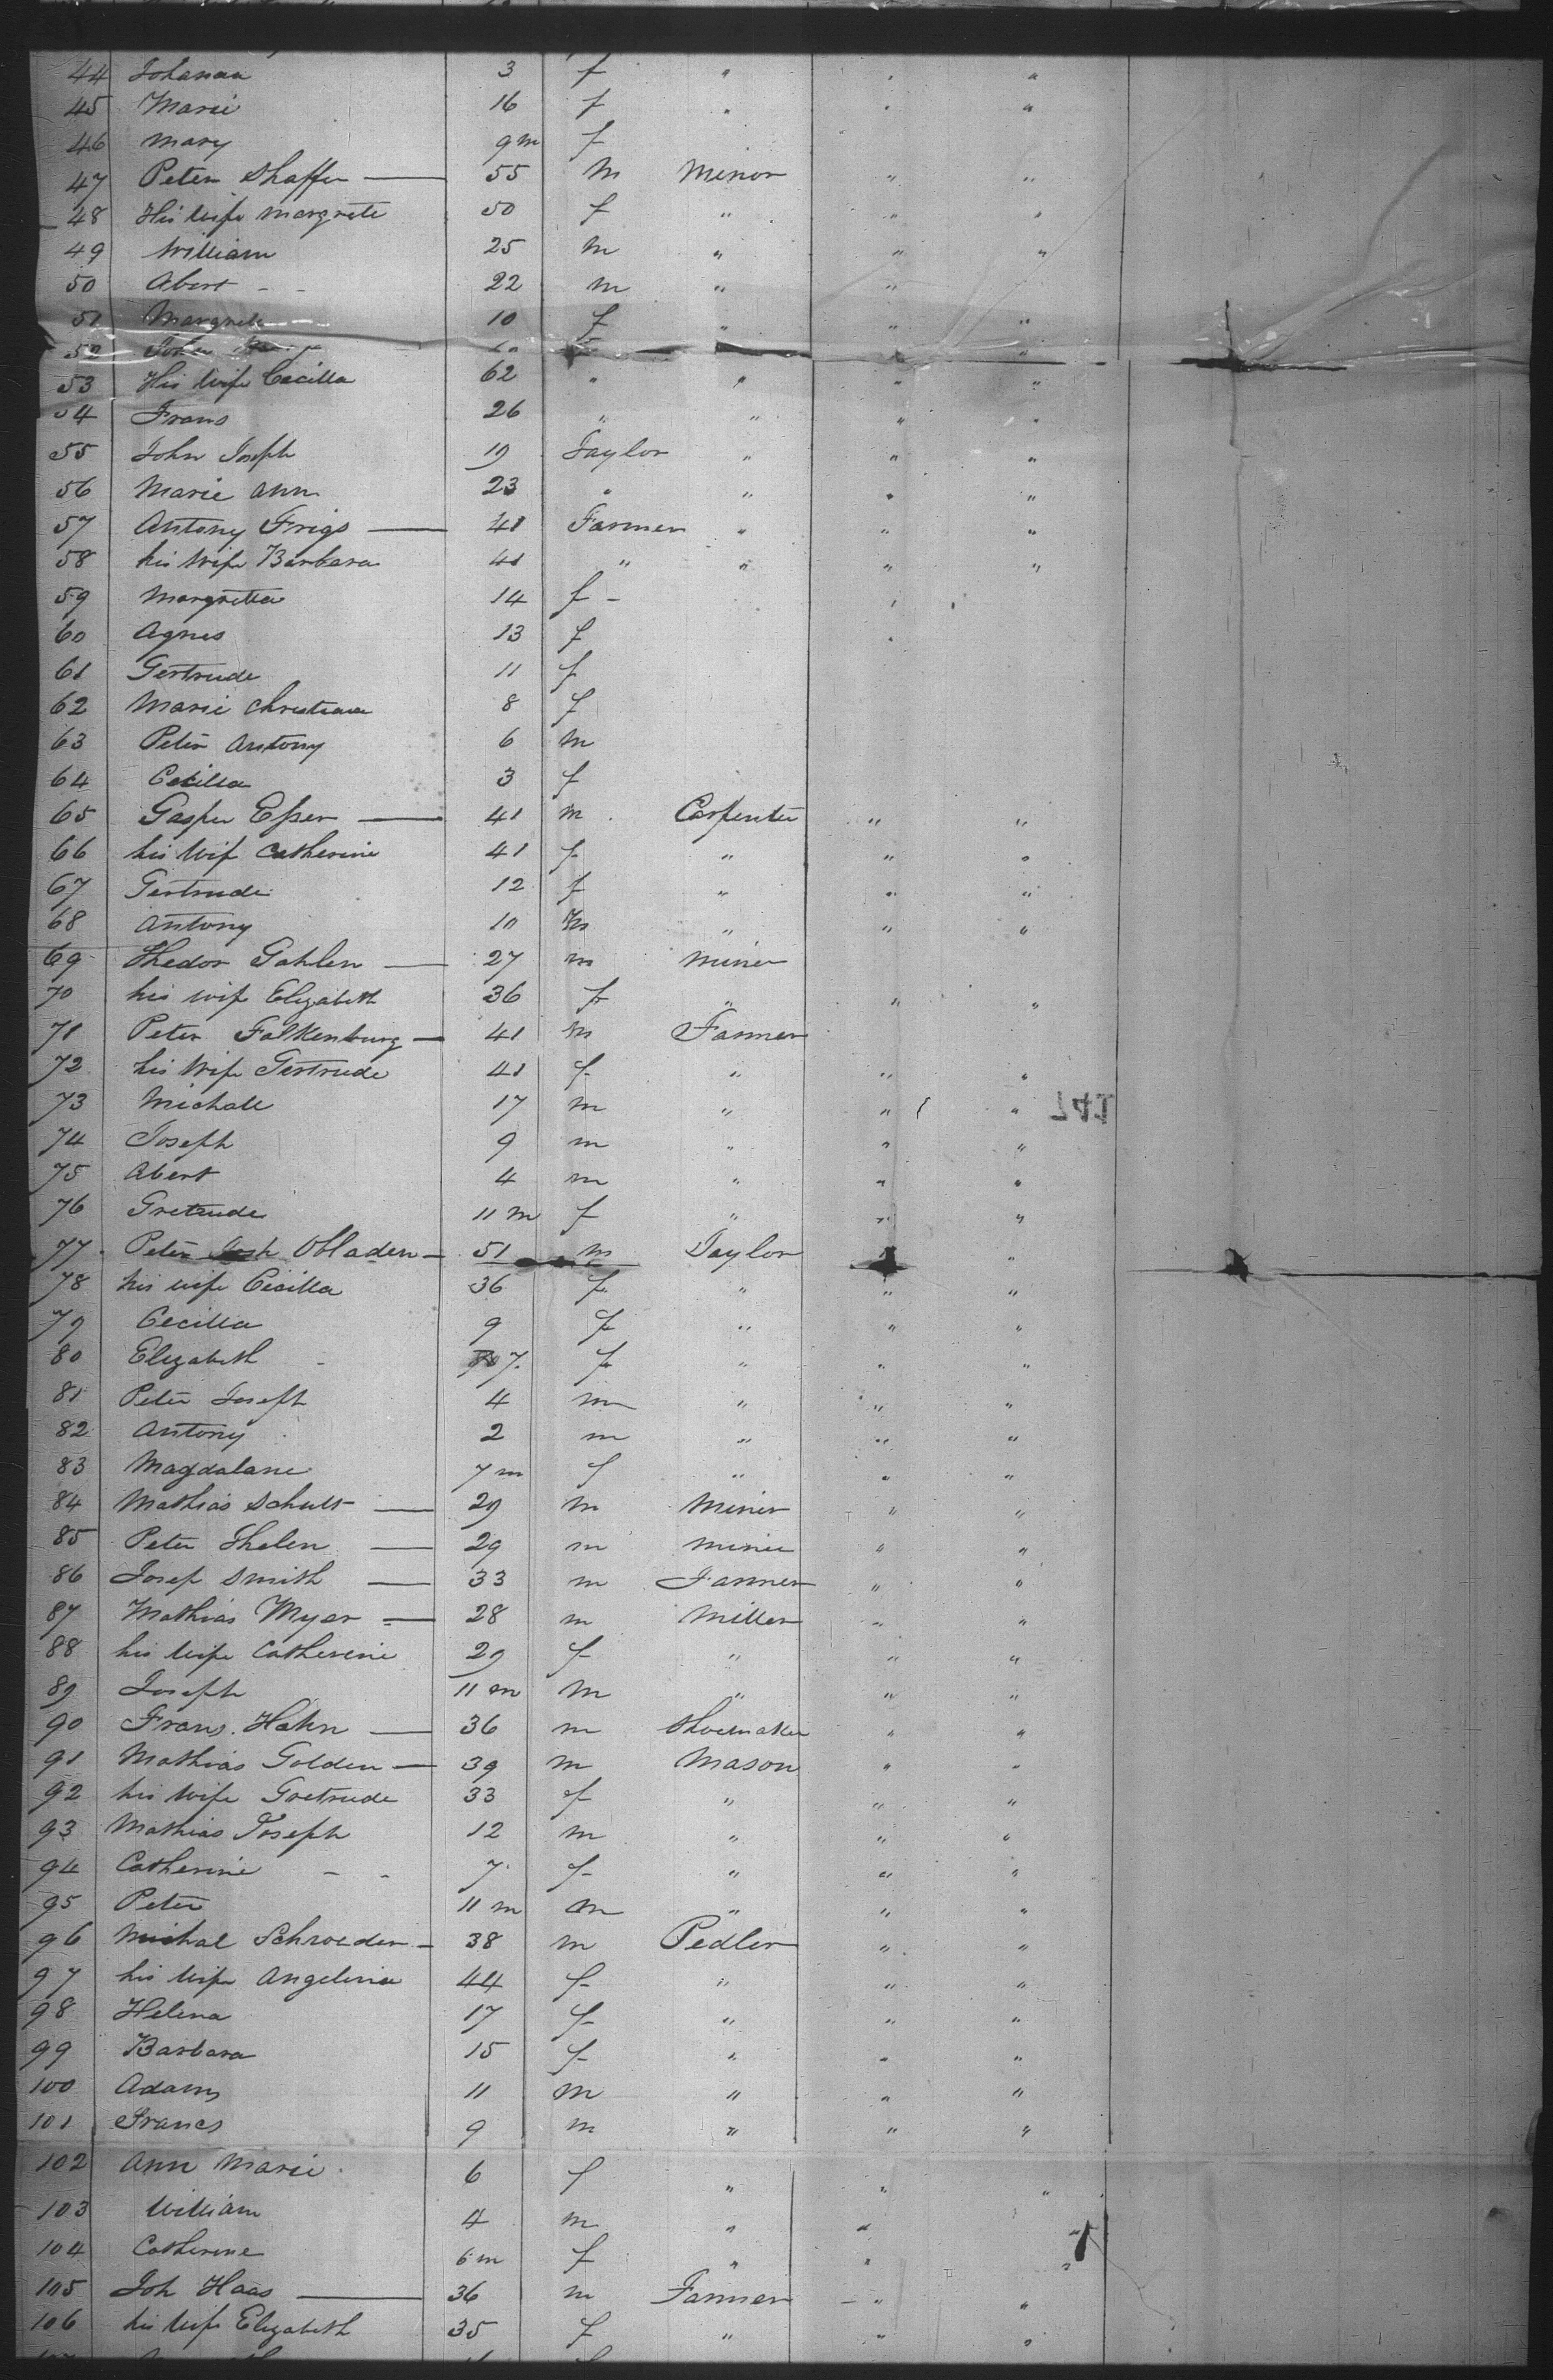 44 Johanna 3 f " " "
45 Marie 16 f " " "
46 Mary 9m f
47 Peter Shaffer — 55 m Minor " "
48 His wife Margrete 50 f " " "
49 William 25 m " " "
50 Abert - - 22 m " "
51 Margrete 10 f " " "
52 John "
53 His wife Cecilla 62 " " " "
54 Frans 26 " " " "
55 John Joseph 19 Taylor " " "
56 Marie Ann 23 " " " "
57 Antony Frigs — 41 Farmer " " "
58 his wife Barbara 41 " " " "
59 Margretta 14 f -
60 Agnes 13 f
61 Gertrude 11 f
62 Marie Christiana 8 f
63 Peter Antony 6 m
64 Cecilla 3 f
65 Gasper Esser — 41 m Carpenter " "
66 his wif Catherine 41 f " " "
67 Gertrude 12 f " " "
68 Antony 10 m " " "
69 Thedor Gahlen — 27 m miner
70 his wif Elizabeth 36 f " " "
71 Peter Falkenburg — 41 m Farmer
72 his wife Gertrude 41 f " " "
73 Michall 17 m " " " 147
74 Joseph 9 m " " "
75 Abert 4 m " " "
76 Gretrude 11 m f " " "
77 Peter Josh Obladen — 51 m Taylor "
78 his wife Cecilla 36 f " " "
79 Cecilla 9 f " " "
80 Elizabeth 7 f " " "
81 Peter Joseph 4 m " " "
82 Antony 2 m " " "
83 Magdalane 7 m f " " "
84 Mathias Schult — 29 m Miner " "
85 Peter Thelen — 29 m miner " "
86 Josef Smith — 33 m Farmer " "
87 Mathias Myer — 28 m Miller " "
88 his wife Catherine 29 f " " "
89 Joseph 11 m m " " "
90 Frans. Hahn — 36 m Shoemaker " "
91 Mathias Golden — 39 m Mason " "
92 his wife Gretrude 33 f " " "
93 Mathias Joseph 12 m " " "
94 Catherine - - 7 f " " "
95 Peter 11 m m " " "
96 Michal Schroeder — 38 m Pedler " "
97 his wife Angelina 44 f " " "
98 Helena 17 f " " "
99 Barbara 15 f " " "
100 Adam 11 m " " "
101 Francs 9 m " " "
102 Ann Marie 6 f " " "
103 William 4 m " " "
104 Catherine 6 m f " " "
105 Joh Haas — 36 m Farmer " "
106 his wife Elizabeth 35 f " " "